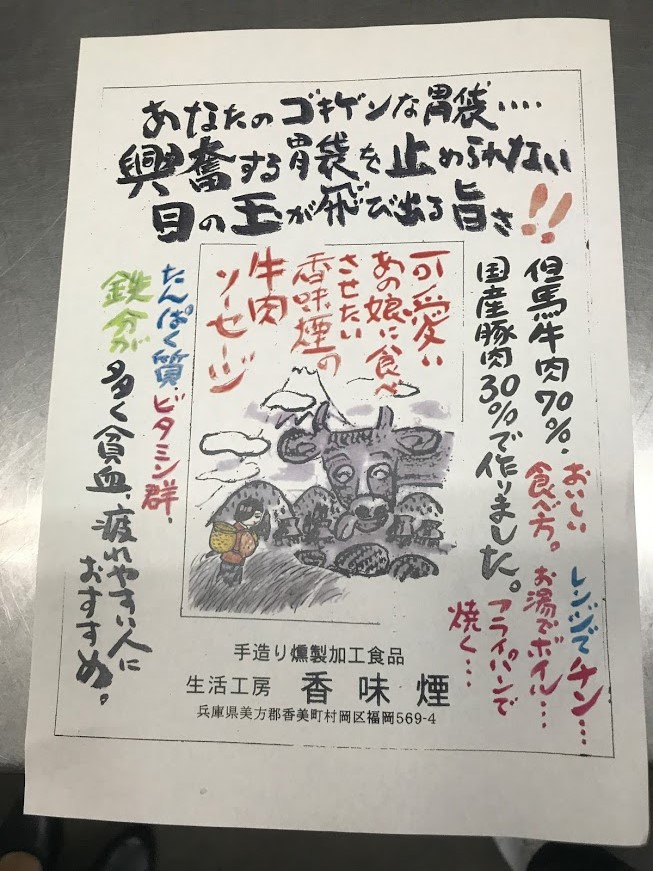 あなたのゴキゲンな胃袋‥‥
興奮する胃袋を止められない
目の玉が飛び出る旨さ!!
但馬牛肉70%.
国産豚肉30%で作りました。
おいしい
食べ方。
レンジでチン…
お湯でボイル…
フライパンで
焼く…
可愛い
あの娘に食べ
させたい
香味煙の
牛肉
ソーセージ
たんぱく質.ビタミン群.
鉄分が多く貧血、疲れやすい人に
おすすめ。
手造り燻製加工食品
生活工房 香味煙
兵庫県美方郡香美町村岡区福岡569-4